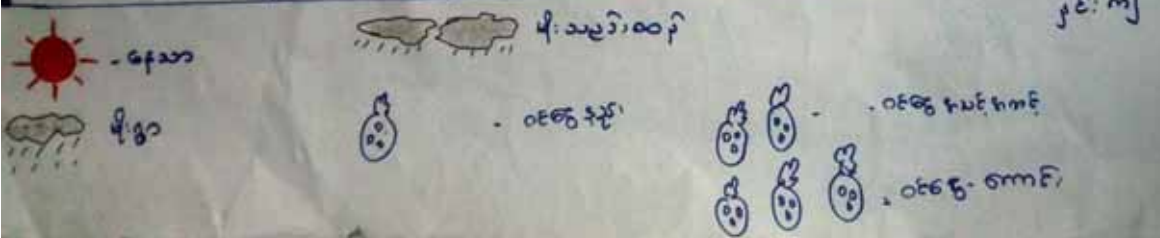 - နေသာ
မိုးသည်းထန်
မိုးရွာ
- ဝင်ငွေနည်း
- ဝင်ငွေအသင့်အတင့်
- ဝင်ငွေ-ကောင်း